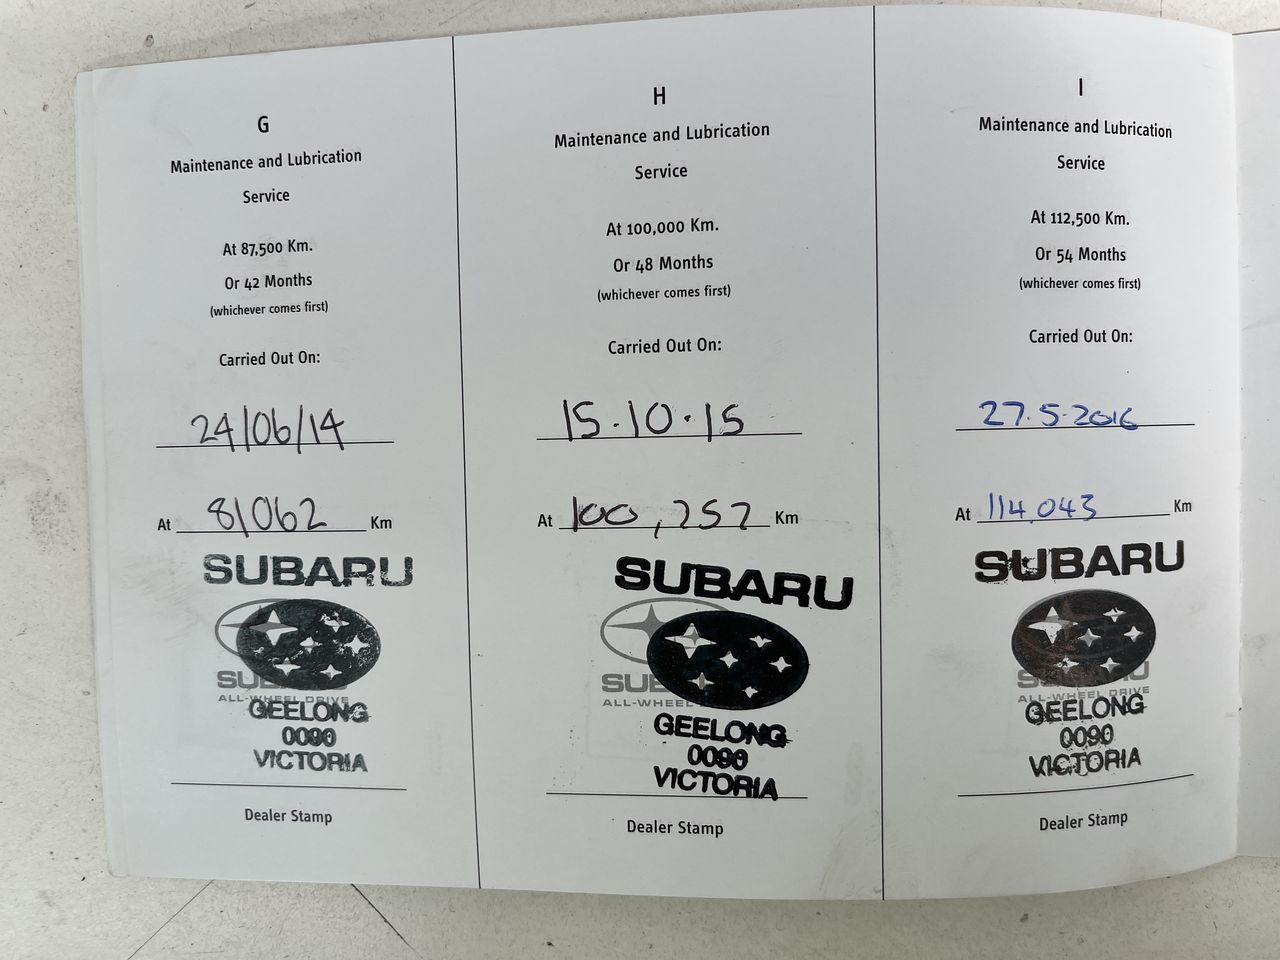 G
Maintenance and Lubrication
Service
At 87,500 Km.
Or 42 Months
(whichever comes first)
Carried Out On:
24/06/14
At 81062 Km
SUBARU
SU
ALL-WHEEL DRIVE
GEELONG
0090
VICTORIA
Dealer Stamp
H
Maintenance and Lubrication
Service
At 100,000 Km.
Or 48 Months
(whichever comes first)
Carried Out On:
15.10.15
At 100,257 Km
SUBARU
SUB
ALL-WHEEL
GEELONG
0090
VICTORIA
Dealer Stamp
I
Maintenance and Lubrication
Service
At 112,500 Km.
Or 54 Months
(whichever comes first)
Carried Out On:
27.5.2016
At 114,043 Km
SUBARU
ALL-WHEEL DRIVE
GEELONG
0090
VICTORIA
Dealer Stamp